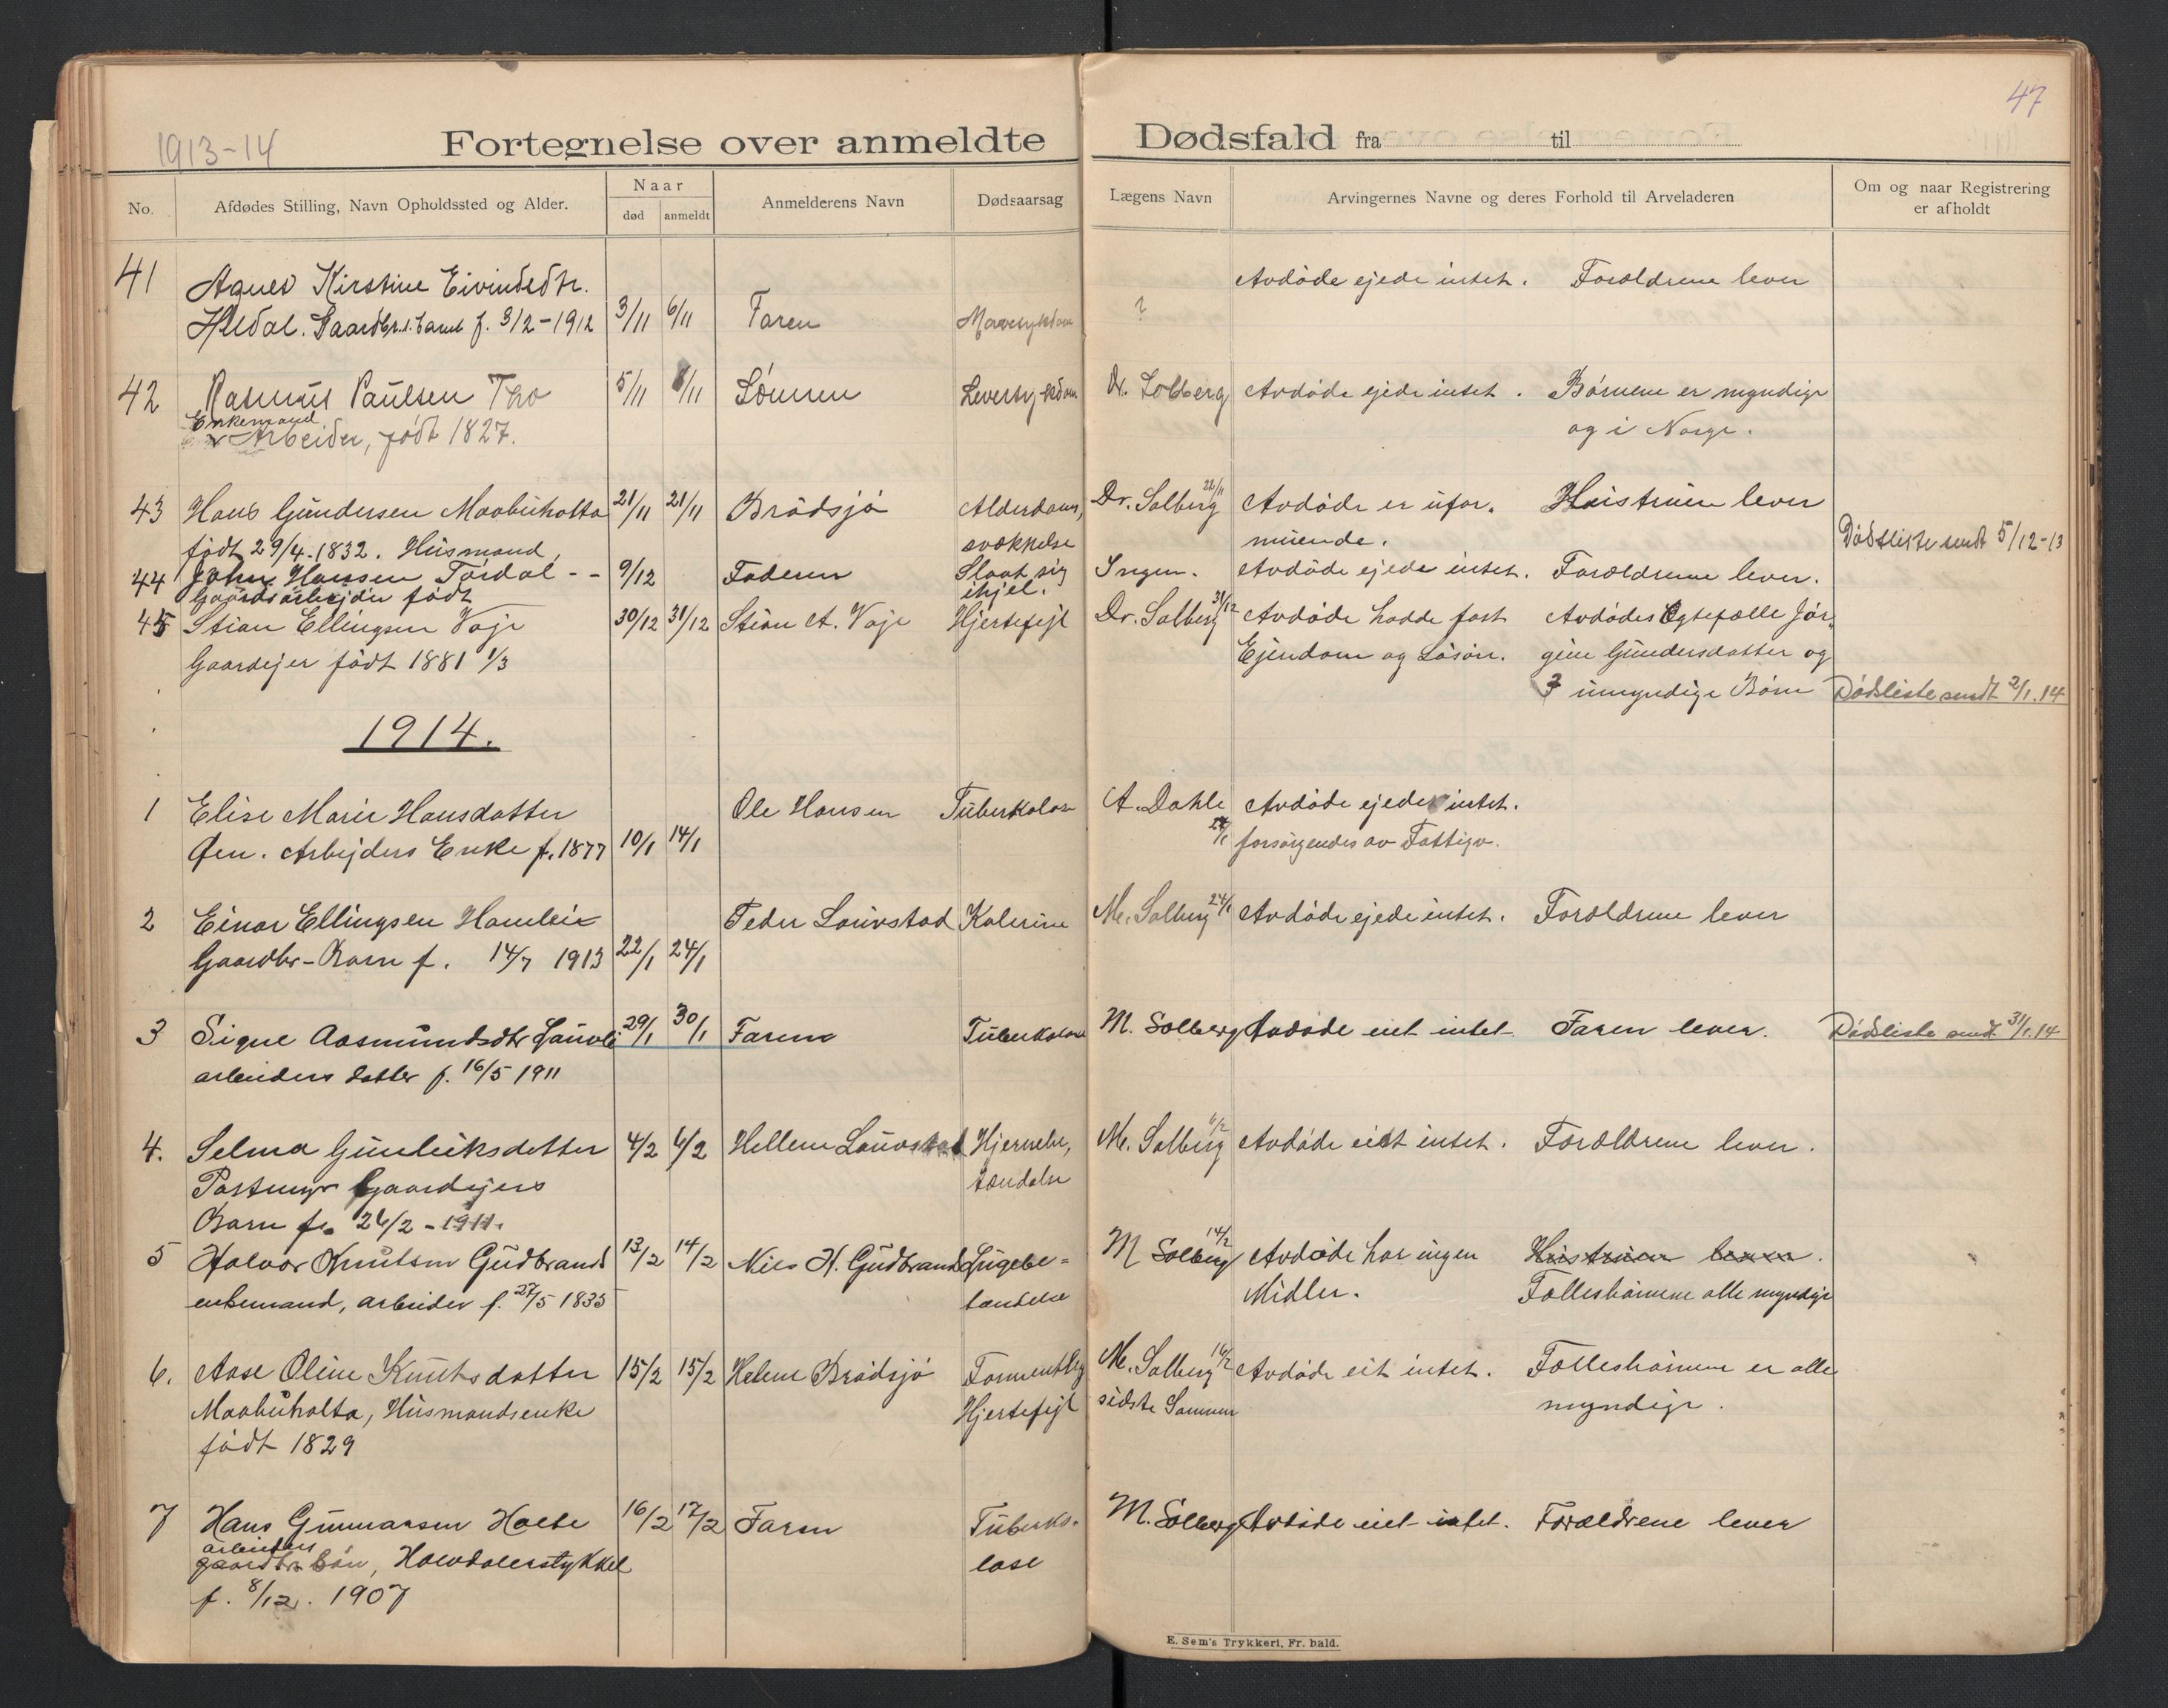 1913-14
47
Fortegnelse over anmeldte Dødsfald fra til
No.
Afdødes Stilling, Navn Opholdssted og Alder.
Naar
død
anmeldt
Anmelderens Navn
Dødsaarsag
Lægens Navn
Arvingernes Navne og deres Forhold til Arveladeren
Om og naar Registrering
er afholdt
41 Agnes Kirstine Eivindsdtr. Avdøde ejede intet. Forældrene lever
Heldal. Gaardbr.s. barn f. 3/2-1912 3/11 6/11 Faren Mavesykdom ?
42 Rasmus Paulsen Tho 5/11 8/11 Sønnen Leversykdom Dr. Solberg Avdøde ejede intet. Børnene er myndige
Enkemand
Arbeider, født 1827. og i Norge.
43 Hans Gundersen Maabuholta 21/11 21/11 Brødsjø Alderdoms, Dr. Solberg 22/11 Avdøde er ufor. Hustruen lever
født 29/4-1832. Husmand, svækkelse muende. Dødsliste sendt 5/12-13
44 John Hansen Tørdal -- 9/12 Faderen Slaat sig Ingen. Avdøde ejede intet. Forældrene lever.
Gaardsarbejder født ihjel.
45 Stian Ellingsen Voje 30/12 31/12 Stian A. Voje Hjertefejl Dr. Solberg 31/12 Avdøde hadde fast Avdødes Egtefælle Jør„
Gaardejer født 1881 1/3 Ejendom og Løsøre. gine Gundersdatter og
3 umyndige Børn Dødsliste sendt 2/1.14
1914.
1 Elise Marie Hansdatter Ole Hansen Tuberkolose A. Dahle Avdøde ejede intet.
Øen. Arbejders Enke f. 1877 10/1 14/1 forsørgendes av Fattigv.
2 Einar Ellingsen Hamleie Peder Lauvstad Kolerine M. Solberg 24/1 Avdøde ejede intet. Forældrene lever
Gaardbr-Barn f. 14/7 1913 22/1 24/1
3 Signe Aasmundsdtr Lauvli 29/1 30/1 Faren Tuberkolose M. Solberg Avdøde eiet intet Faren lever. Dødsliste sendt 31/1.14
arbeiders datter f. 16/5 1911
4. Selma Gunleiksdatter 4/2 6/2 Hellem Lauvstad Hjernebe, M. Solberg 6/2 Avdøde eiet intet. Forældrene lever.
Postmyr Gaardejers tændelse
Barn f. 26/2-1911.
5 Halvor Knutsen Gudbrands 13/2 14/2 Niels H. Gudbrands Lungebe= M Solberg 14/2 Avdøde har ingen Hustruen lever.
enkemand, arbeider f. 27/5 1835 tændelse Midler. Fællesbørnene alle myndige
6. Aase Oline Knutsdatter 15/2 15/2 Helene Brødsjø Formentlig M. Solberg 16/2 Avdøde eit intet. Fællesbørnene er alle
Maabuholta, Husmandsenke Hjertefejl sidste Sommer myndige.
født 1829
7 Hans Gunnarsen Holte 16/2 17/2 Faren Tuberko- M. Solberg Avdøde eiet intet. Forældrene lever
arbeiders
gaardbr. Søn, Hovdalerstykket lose
f. 8/12. 1907
E. Sem's Trykkeri, Fr. hald.